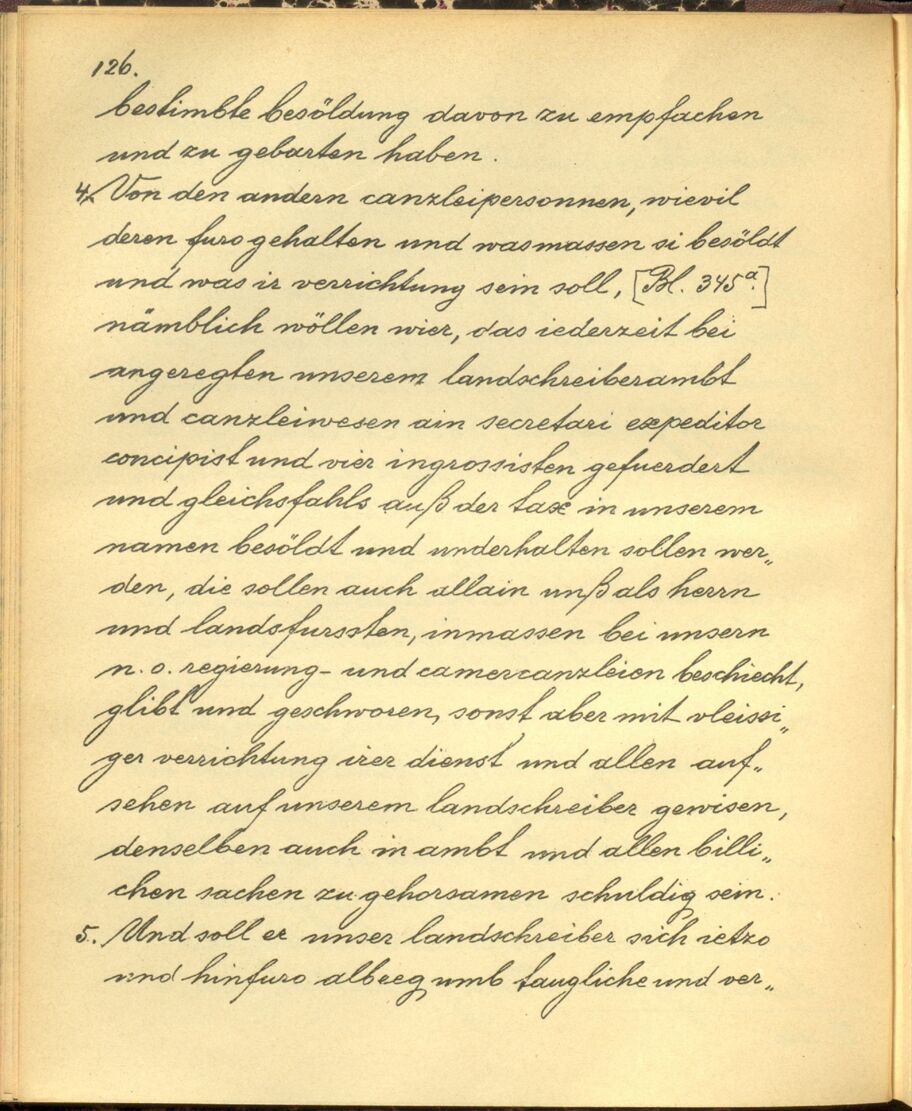 126.
bestimbte besöldung davon zu empfachen
und zu gebarten haben.
4. Von den andern canzleipersonnen, wievil
deren furo gehalten und wasmassen si besöldt
und was ir verrichtung sein soll, [Bl. 345a.]
nämblich wöllen wier, das iederzeit bei
angeregten unserem landschreiberambt
und canzleiwesen ain secretari expeditor
concipist und vier ingrossisten gefuerdert
und gleichsfahls auß der tax in unserem
namen besöldt und underhalten sollen wer„
den, die sollen auch allain unß als herrn
und landsfurssten, inmassen bei unsern
n. o. regierung- und camercanzleien beschiecht,
glibt und geschworen, sonst aber mit vleissi„
ger verrichtung irer dienst und allen auf„
sehen auf unserem landschreiber gewisen,
denselben auch in ambt und allen billi„
chen sachen zu gehorsamen schuldig sein.
5. Und soll er unser landschreiber sich ietzo
und hinfuro albeeg umb taugliche und ver„